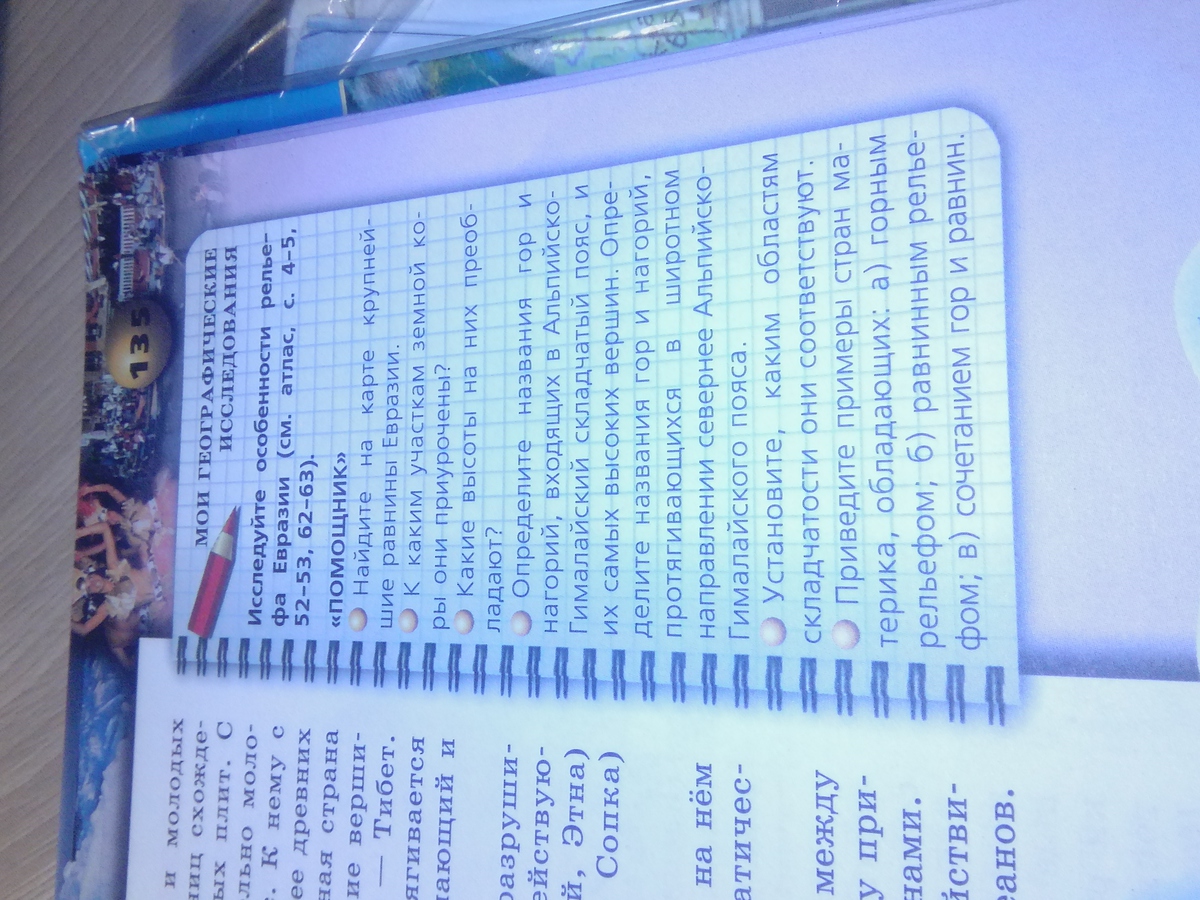 135
МОИ ГЕОГРАФИЧЕСКИЕ
ИССЛЕДОВАНИЯ
Исследуйте особенности релье-
фа Евразии (см. атлас, с. 4–5,
52–53, 62–63).
«ПОМОЩНИК»
Найдите на карте крупней-
шие равнины Евразии.
К каким участкам земной ко-
ры они приурочены?
Какие высоты на них преоб-
ладают?
Определите названия гор и
нагорий, входящих в Альпийско-
Гималайский складчатый пояс, и
их самых высоких вершин. Опре-
делите названия гор и нагорий,
протягивающихся в широтном
направлении севернее Альпийско-
Гималайского пояса.
Установите, каким областям
складчатости они соответствуют.
Приведите примеры стран ма-
терика, обладающих: а) горным
рельефом; б) равнинным релье-
фом; в) сочетанием гор и равнин.
и молодых
схожде-
плит. С
моло-
К нему с
древних
страна
верши-
— Тибет.
и
Этна)
Сопка)
на нём
между
при-